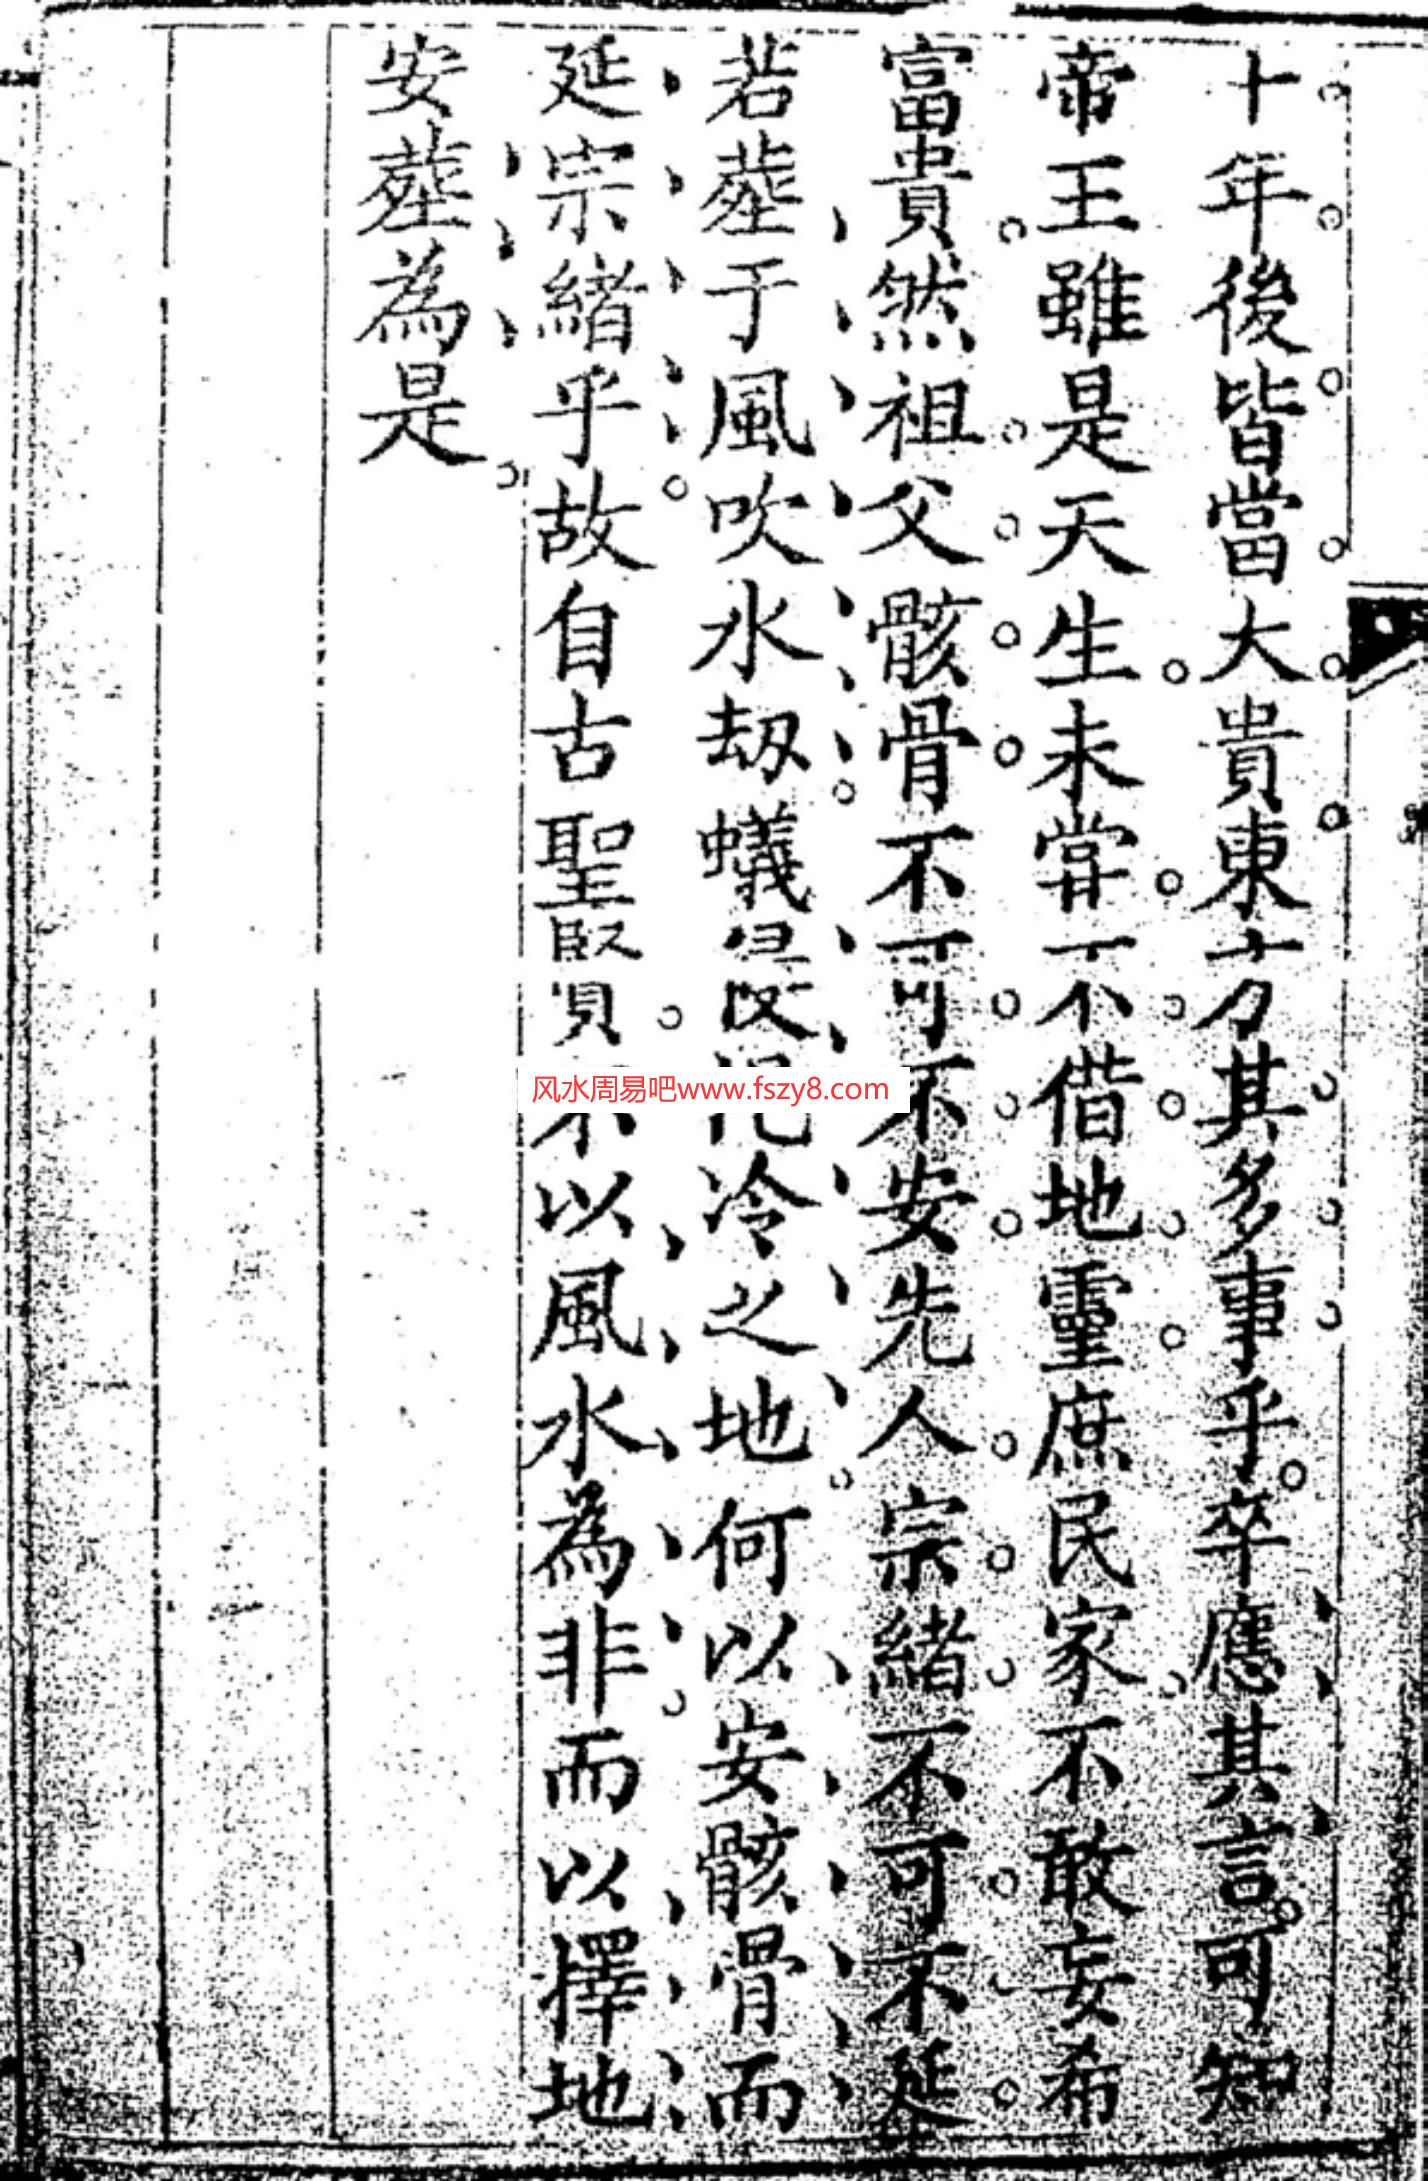 十年後皆當大貴東方其多事乎卒應其言可知
帝王雖是天生未甞不借地靈庶民家不敢妄希
富貴然祖父骸骨不可不安先人宗緒不可不延
若塟于風吹水刼蟻侵泥冷之地何以安骸骨而
延宗緒乎故自古聖賢不以風水為非而以擇地
安塟為是
风水周易吧www.fszy8.com